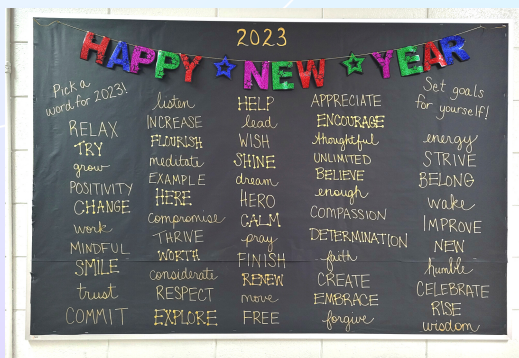 2023
HAPPY NEW YEAR
Pick a
word for 2023!
RELAX
TRY
grow
POSITIVITY
CHANGE
work
MINDFUL
SMILE
trust
COMMIT
listen
INCREASE
FLOURISH
meditate
EXAMPLE
HERE
compromise
THRIVE
WORTH
considerate
RESPECT
EXPLORE
HELP
lead
WISH
SHINE
dream
HERO
CALM
pray
FINISH
RENEW
move
FREE
APPRECIATE
ENCOURAGE
thoughtful
UNLIMITED
BELIEVE
enough
COMPASSION
DETERMINATION
faith
CREATE
EMBRACE
forgive
Set goals
for yourself!
energy
STRIVE
BELONG
wake
IMPROVE
NEW
humble
CELEBRATE
RISE
wisdom